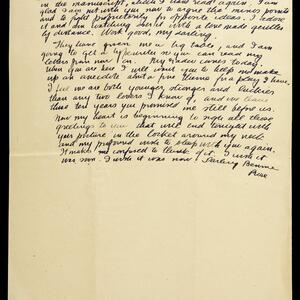 in the manuscript, which I have read again. I am
glad I am not with you now to argue the minor points
and to fight propriety for opposite ideas. I adore
it and am watching over it with a love made gentler
by distance. Work good, my darling.
They have given me a big table, and I am
going to get a typewriter so you can read my
letters from now on. My radio comes today.
When you are here I will want you to help me make
up an anecdote and a fine theme for a play I have.
I feel we are both younger, stronger and luckier
than any two lovers I know of, and we have
those ten years you promised me still before us.
Now my heart is beginning to sigh all close
greetings to you that will end tonight with
your picture in the locket around my neck
and my preferred wish to sleep with you again.
It makes me confused to think of it. I wish it
was soon. I wish it was now! Darling